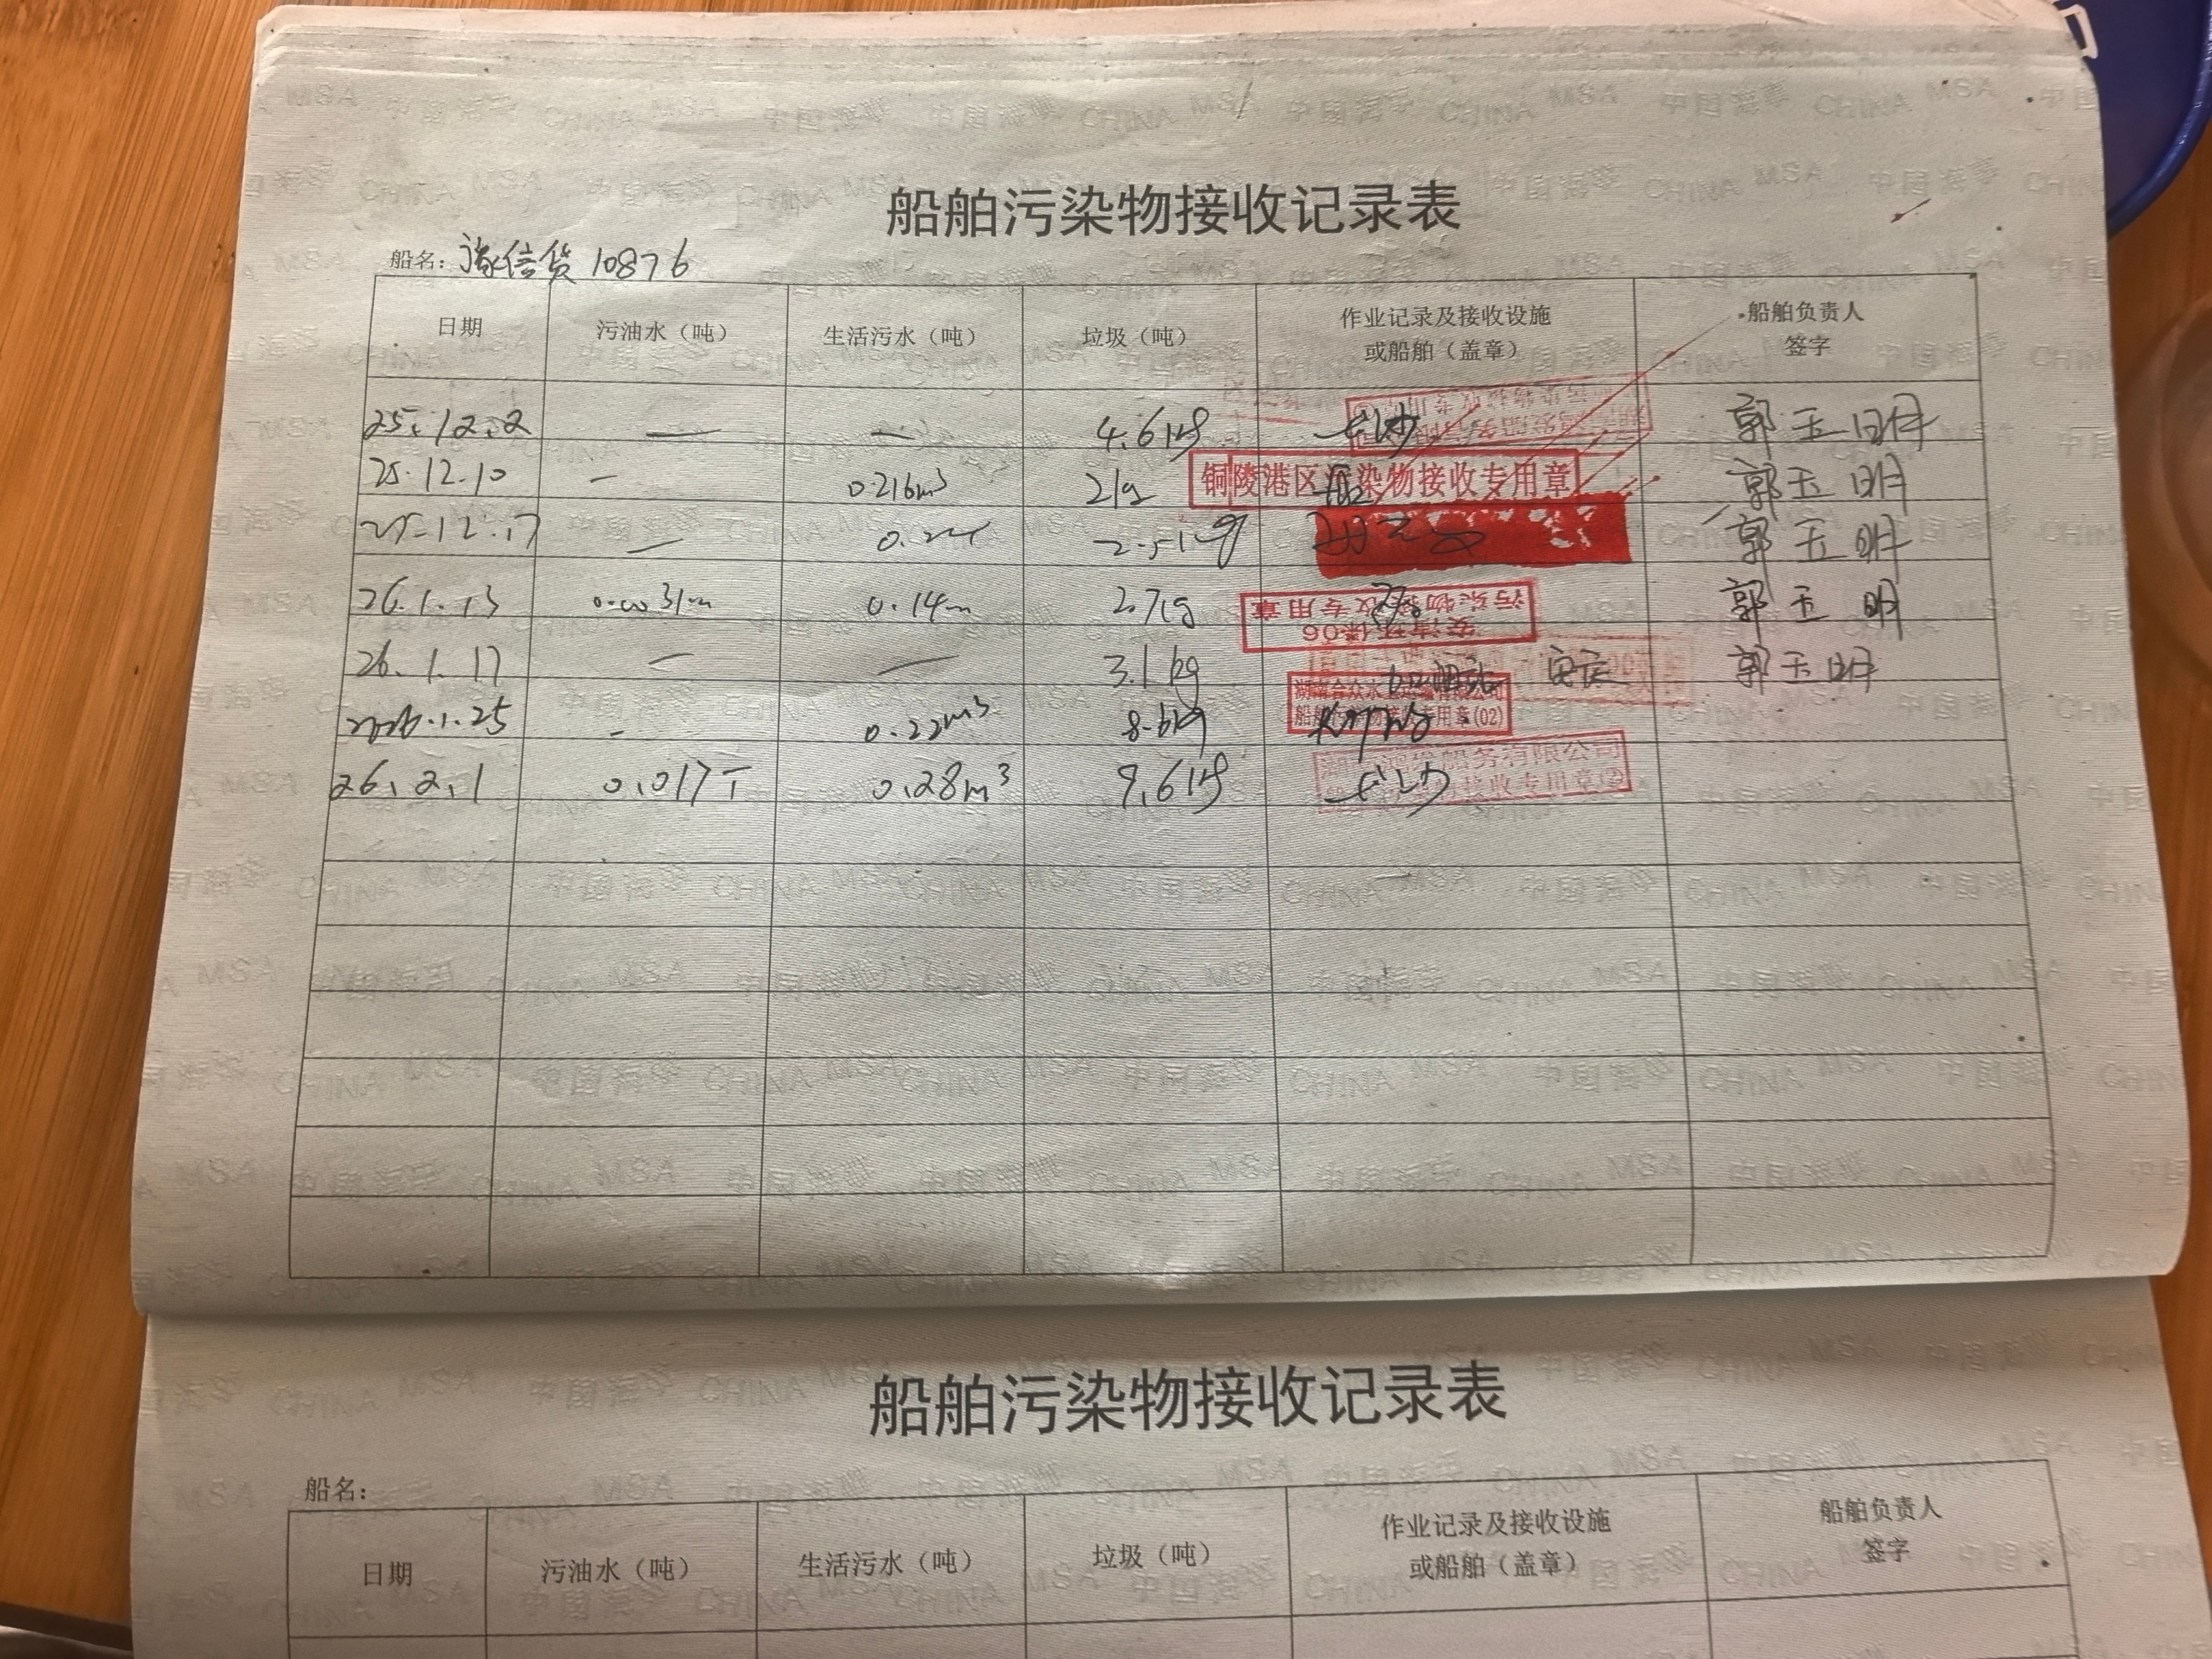 船舶污染物接收记录表
船名：豫信货10876
日期 污油水（吨） 生活污水（吨） 垃圾（吨） 作业记录及接收设施或船舶（盖章） 船舶负责人签字
25.12.2 — — 4.6kg 长沙 郭玉明
25.12.10 — 0.216m³ 2kg 铜陵港区污染物接收专用章 郭玉明
25.12.17 — 2.5kg 郭玉明
26.1.13 0.0031m 0.14m 2.7kg 安洁环保06 污染物接收专用章 郭玉明
26.1.17 — — 3.1kg 安庆 郭玉明
2026.1.25 — 0.22m³ 8.6kg 船舶污染物接收专用章(02)
26.2.1 0.017T 0.28m³ 9.6kg 长沙 船务有限公司 接收专用章
船舶污染物接收记录表
船名：
日期 污油水（吨） 生活污水（吨） 垃圾（吨） 作业记录及接收设施或船舶（盖章） 船舶负责人签字
中国海事 CHINA MSA